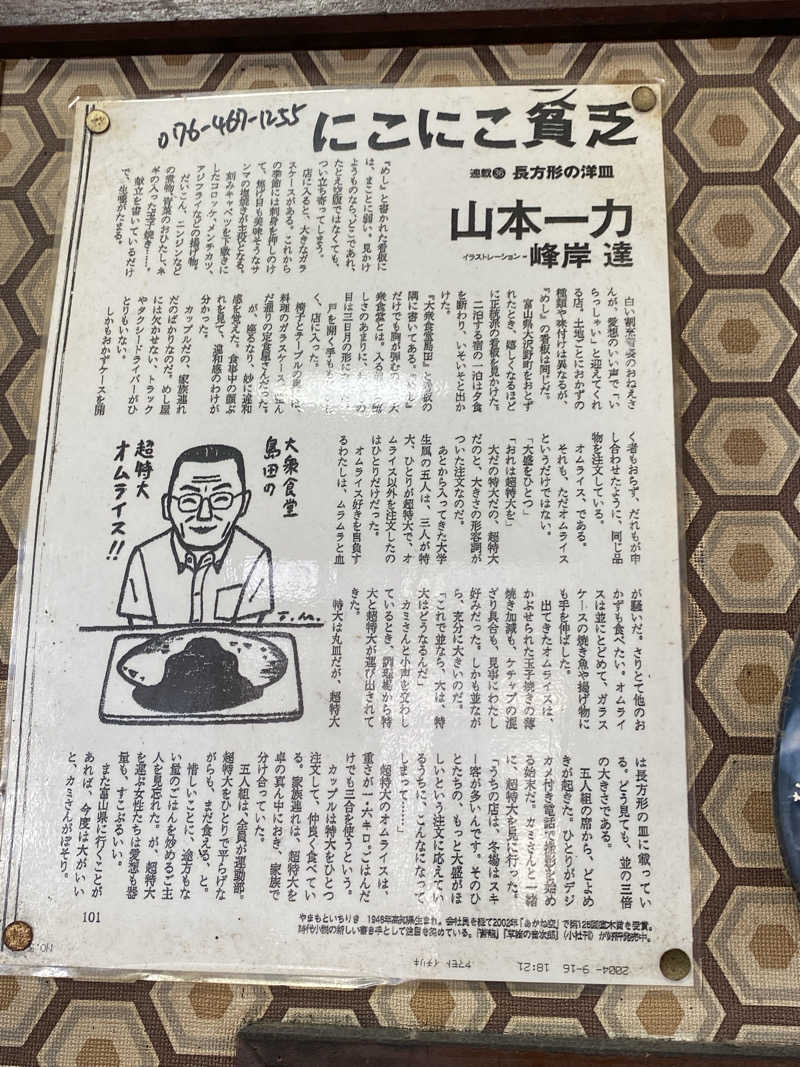 076-467-1255
にこにこ貧乏
連載㊱ 長方形の洋皿
山本一力
イラストレーション=峰岸 達
『めし』と書かれた看板に
は、まことに弱い。見かけ
ようものなら、どこであれ、
たとえ空腹ではなくても、
つい立ち寄ってしまう。
店に入ると、大きなガラ
スケースがある。これから
の季節には刺身を押しのけ
て、焦げ目も美味そうなサ
ンマの塩焼きが主役となる。
刻みキャベツを下敷きに
したコロッケ、メンチカツ、
アジフライなどの揚げ物。
だいこん、ニンジンなど
の煮物。青菜のおひたし、ネ
ギの入った玉子焼き……。
献立を書いているだけ
で、生唾がたまる。
白い割烹着姿のおねえさ
んが、愛想のいい声で「い
らっしゃい」と迎えてくれ
る店。土地ごとにおかずの
種類や味付けは異なるが、
『めし』の看板は同じだ。
富山県大沢野町をおとず
れたとき、嬉しくなるほど
に正統派の看板を見かけた。
二泊する宿の一泊は夕食
を断わり、いそいそと出か
けた。
『大衆食堂島田』と看板の
隅に書いてある。『めし』
だけでも胸が弾むのに、大
衆食堂とは。入る前から嬉
しさのあまりに、
目は三日月の形に
戸を開く手も
く、店に入った。
椅子とテーブルの
料理のガラスケース。
だ通りの定食屋さんだった。
が、座るなり、妙に違和
感を覚えた。食事中の顔ぶ
れを見て、違和感のわけが
分かった。
カップルだの、家族連れ
だのばかりなのだ。めし屋
には欠かせない、トラック
やタクシードライバーがひ
とりもいない。
しかもおかずケースを開
く者もおらず、だれもが申
し合わせたように、同じ品
物を注文している。
オムライス、である。
それも、ただオムライス
というだけではない。
「大盛をひとつ」
「おれは超特大を」
大だの特大だの、超特大
だのと、大きさの形容詞が
ついた注文なのだ。
あとから入ってきた大学
生風の五人は、三人が特
大、ひとりが超特大で、オ
ムライス以外を注文したの
はひとりだけだった。
オムライス好きを自負す
るわたしは、ムラムラと血
が騒いだ。さりとて他のお
かずも食べたい。オムライ
スは並にとどめて、ガラス
ケースの焼き魚や揚げ物に
も手を伸ばした。
出てきたオムライスは、
かぶせられた玉子焼きの薄
焼き加減も、ケチップの混
ざり具合も、見事にわたし
好みだった。しかも並なが
ら、充分に大きいのだ。
「これで並なら、大は、特
大はどうなるんだ」
カミさんと小声を交わし
ているとき、調理場から特
大と超特大が運び出されて
きた。
特大は丸皿だが、超特大
は長方形の皿に載ってい
る。どう見ても、並の三倍
の大きさである。
五人組の席から、どよめ
きが起きた。ひとりがデジ
カメ付き電話で撮影を始め
る始末だ。カミさんと一緒
に、超特大を見に行った。
「うちの店は、冬場はスキ
ー客が多いんです。そのひ
とたちの、もっと大盛がほ
しいという注文に応えてい
るうちに、こんなになって
しまって……」
超特大のオムライスは、
重さが一・六キロ。ごはんだ
けでも三合を使うという。
カップルは特大をひとつ
注文して、仲良く食べてい
る。家族連れは、超特大を
卓の真ん中におき、家族で
分け合っていた。
五人組は、全員が運動部。
超特大をひとりで平らげな
がらも、まだ食える、と。
惜しいことに、途方もな
い量のごはんを炒めるご主
人を見忘れた。が、超特大
を運ぶ女性たちは愛想も器
量も、すこぶるいい。
また富山県に行くことが
あれば、今度は大がいい
と、カミさんがぼそり。
大衆食堂
島田の
超特大
オムライス!!
T.M.
やまもといちりき 1948年高知県生まれ。会社員を経て2002年「あかね空」で第126回直木賞を受賞。
時代小説の新しい書き手として注目を集めている。
101
2004- 9-16 18:21
ヤマモト イチリキ
NO.